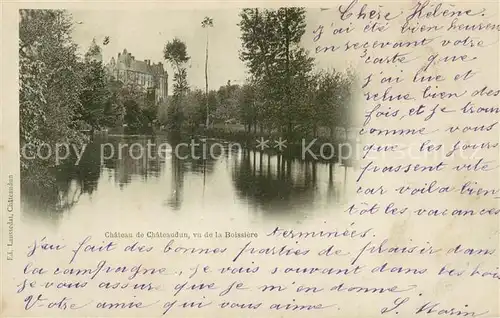 Chère Hélène.
J'ai été bien heureuse
en recevant votre
carte que
j'ai lue et
relue bien des
fois, et je trouve
comme vous
que les jours
passent vite
car voilà bien-
tôt les vacances
terminées.
J'ai fait des bonnes parties de plaisir dans
la campagne, je vais souvant dans les bois
je vous assure que je m'en donne.
Votre amie qui vous aime. S. Morin
Château de Châteaudun, vu de la Boissière
Ed. Laussedat, Châteaudun
copyright delcampe.net